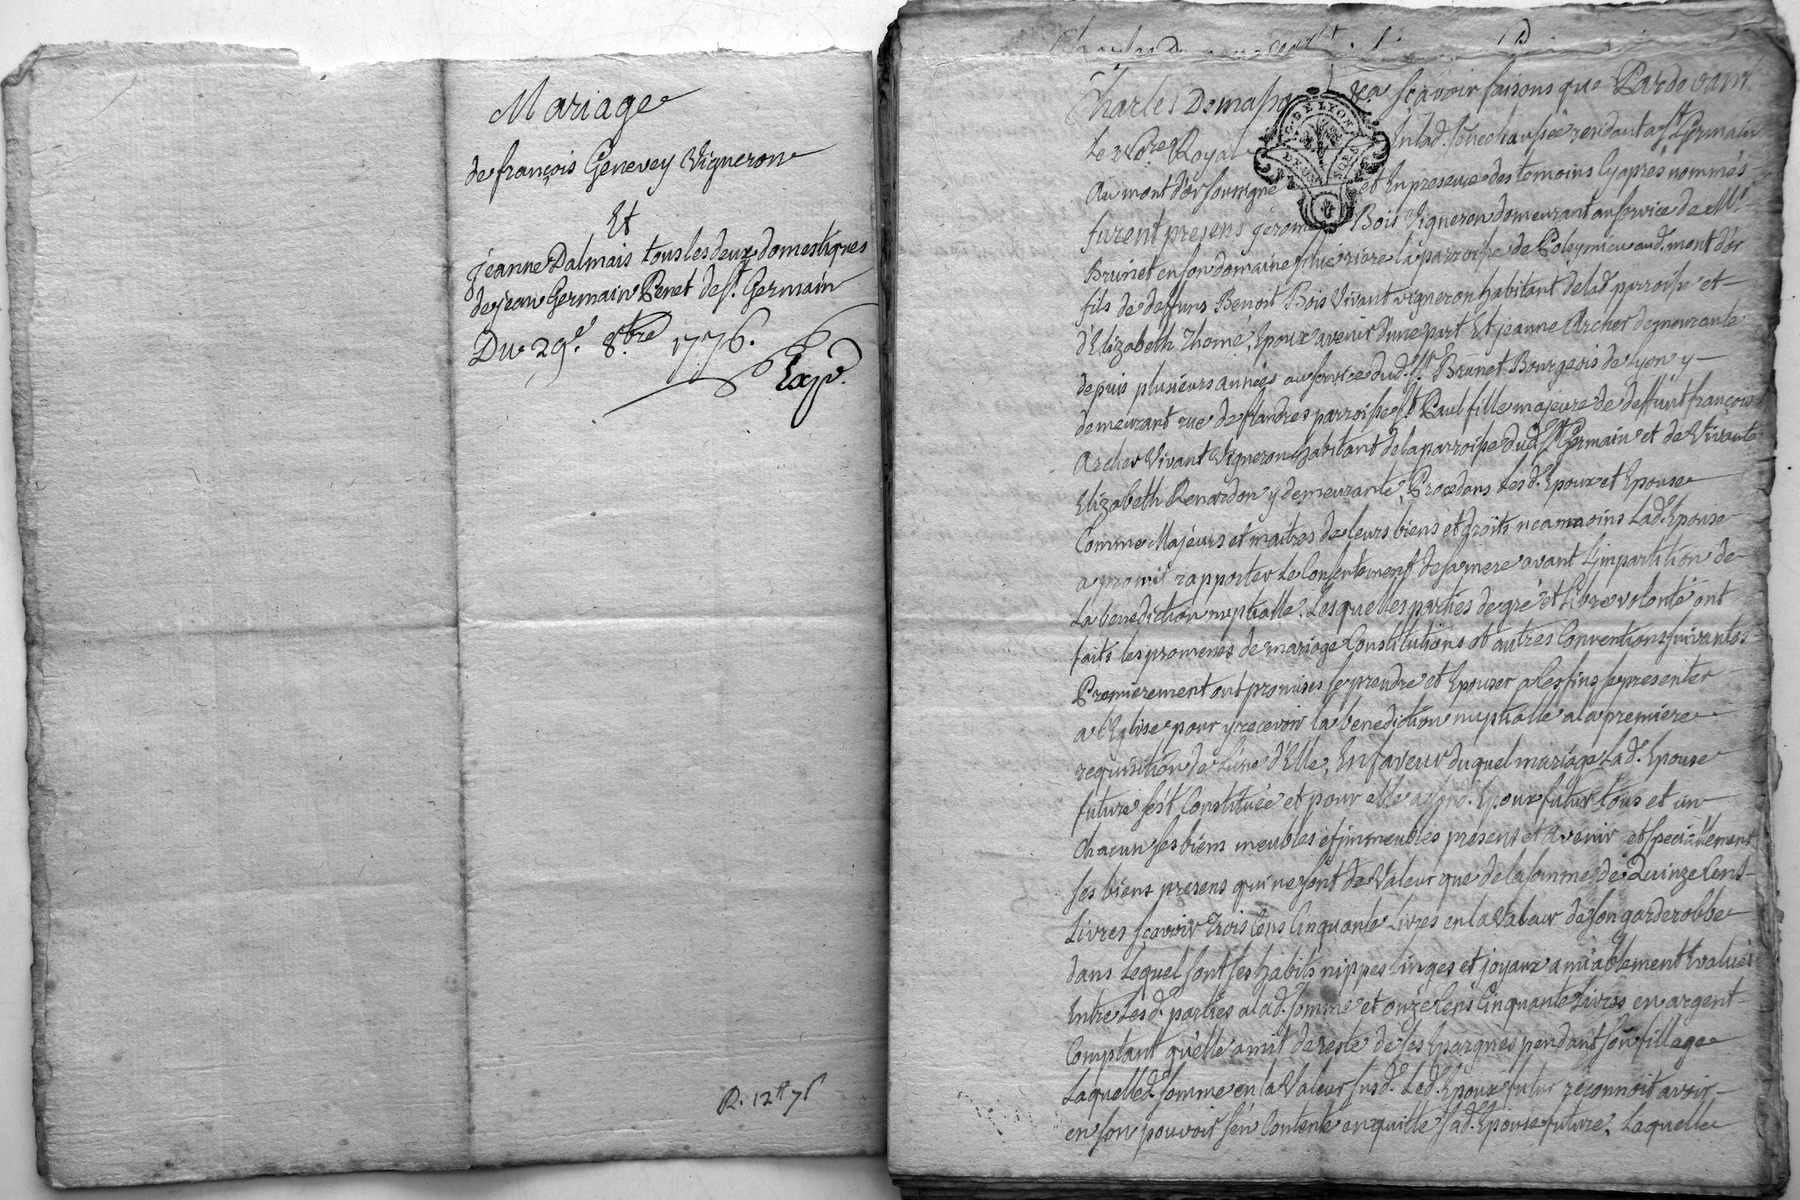 Mariage
de françois Genevey Vigneron
Et
jeanne Dalmais tous les deux domestiques
de jean Germain Penet de St. Germain
Du 29e. 8bre 1776.
Exp.
R. 12tt 7s
Charles Demasso sçavoir faisons que Pardevant
Le Nore Royal en lad. senechaussée residant a St Germain
Au mont d'or soussigné et En presence des temoins Cy apres nommés
furent presens gerome Bois Vigneron demeurant au service de Mr
Brunet en son domaine riere la parroisse de Poleymieu aud. mont d'or
fils de deffunt Benoit Bois Vivant vigneron habitant de lad parroisse et
d'Elizabeth Thome, Epoux avenir d'une part Et jeanne Archer demeurante
depuis plusieurs années au service dud. Sr. Brunet Bourgeois de Lyon y
demeurant rue de flandres parroisse St Paul fille majeure de deffunt françois
Archer Vivant Vigneron habitant de la parroisse dud. St Germain et de Vivante
Elizabeth Renardon y demeurante, Procedans Lesd. Epoux et Epouse
Comme Majeurs et maitres de leurs biens et droits neanmoins Lad. Epouse
a promis rapporter Le Consentement de sa mere avant L'impartition de
La benediction nuptialle. Lesquelles parties de gré et Libre volonté ont
faits les promesses de mariage Constitutions et autres Conventions suivantes.
Premierement ont promises se prendre et Epouser a Ces fins se presenter
a l'Eglise pour y recevoir la benediction nuptialle a la premiere
requisition de L'une d'Elle, En faveur duquel mariage Lad. Epouse
future s'est Constituée et pour elle a sond. Epoux futur tous et un
Chacun ses biens meubles et immeubles presens et avenir et specialement
ses biens presens qui ne sont de Valeur que de la somme de Quinze Cens
Livres sçavoir Trois Cens Cinquante Livres en la Valeur de son garderobbe
dans Lequel sont ses habits nippes linges et joyaux amiablement Evalués
Entre Lesd. parties a lad. somme et onze Cens Cinquante Livres en argent
Comptant qu'elle a mit de reste de ses Epargnes pendant son fillage
Laquelle d. somme en la Valeur susd. Led. Epoux futur reconnoit avoir
en son pouvoir s'en Contente en quitte sad. Epouse future, Laquelle